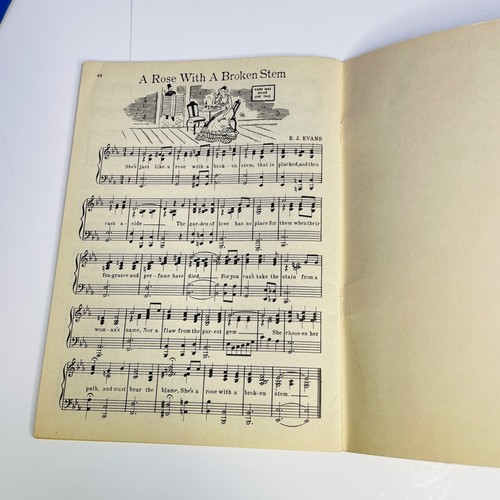 49
A Rose With A Broken Stem
E. J. EVANS
She's just like a rose with a brok - en stem, that is plucked, and then
cast a - side The gar-den of love has no place for them when their
fra-grance and per - fume have died, For you can't take the stain from a
wom - an's name, Nor a flaw from the pur-est gem She choos-es her
path, and must bear the blame, She's a rose with a brok-en stem.